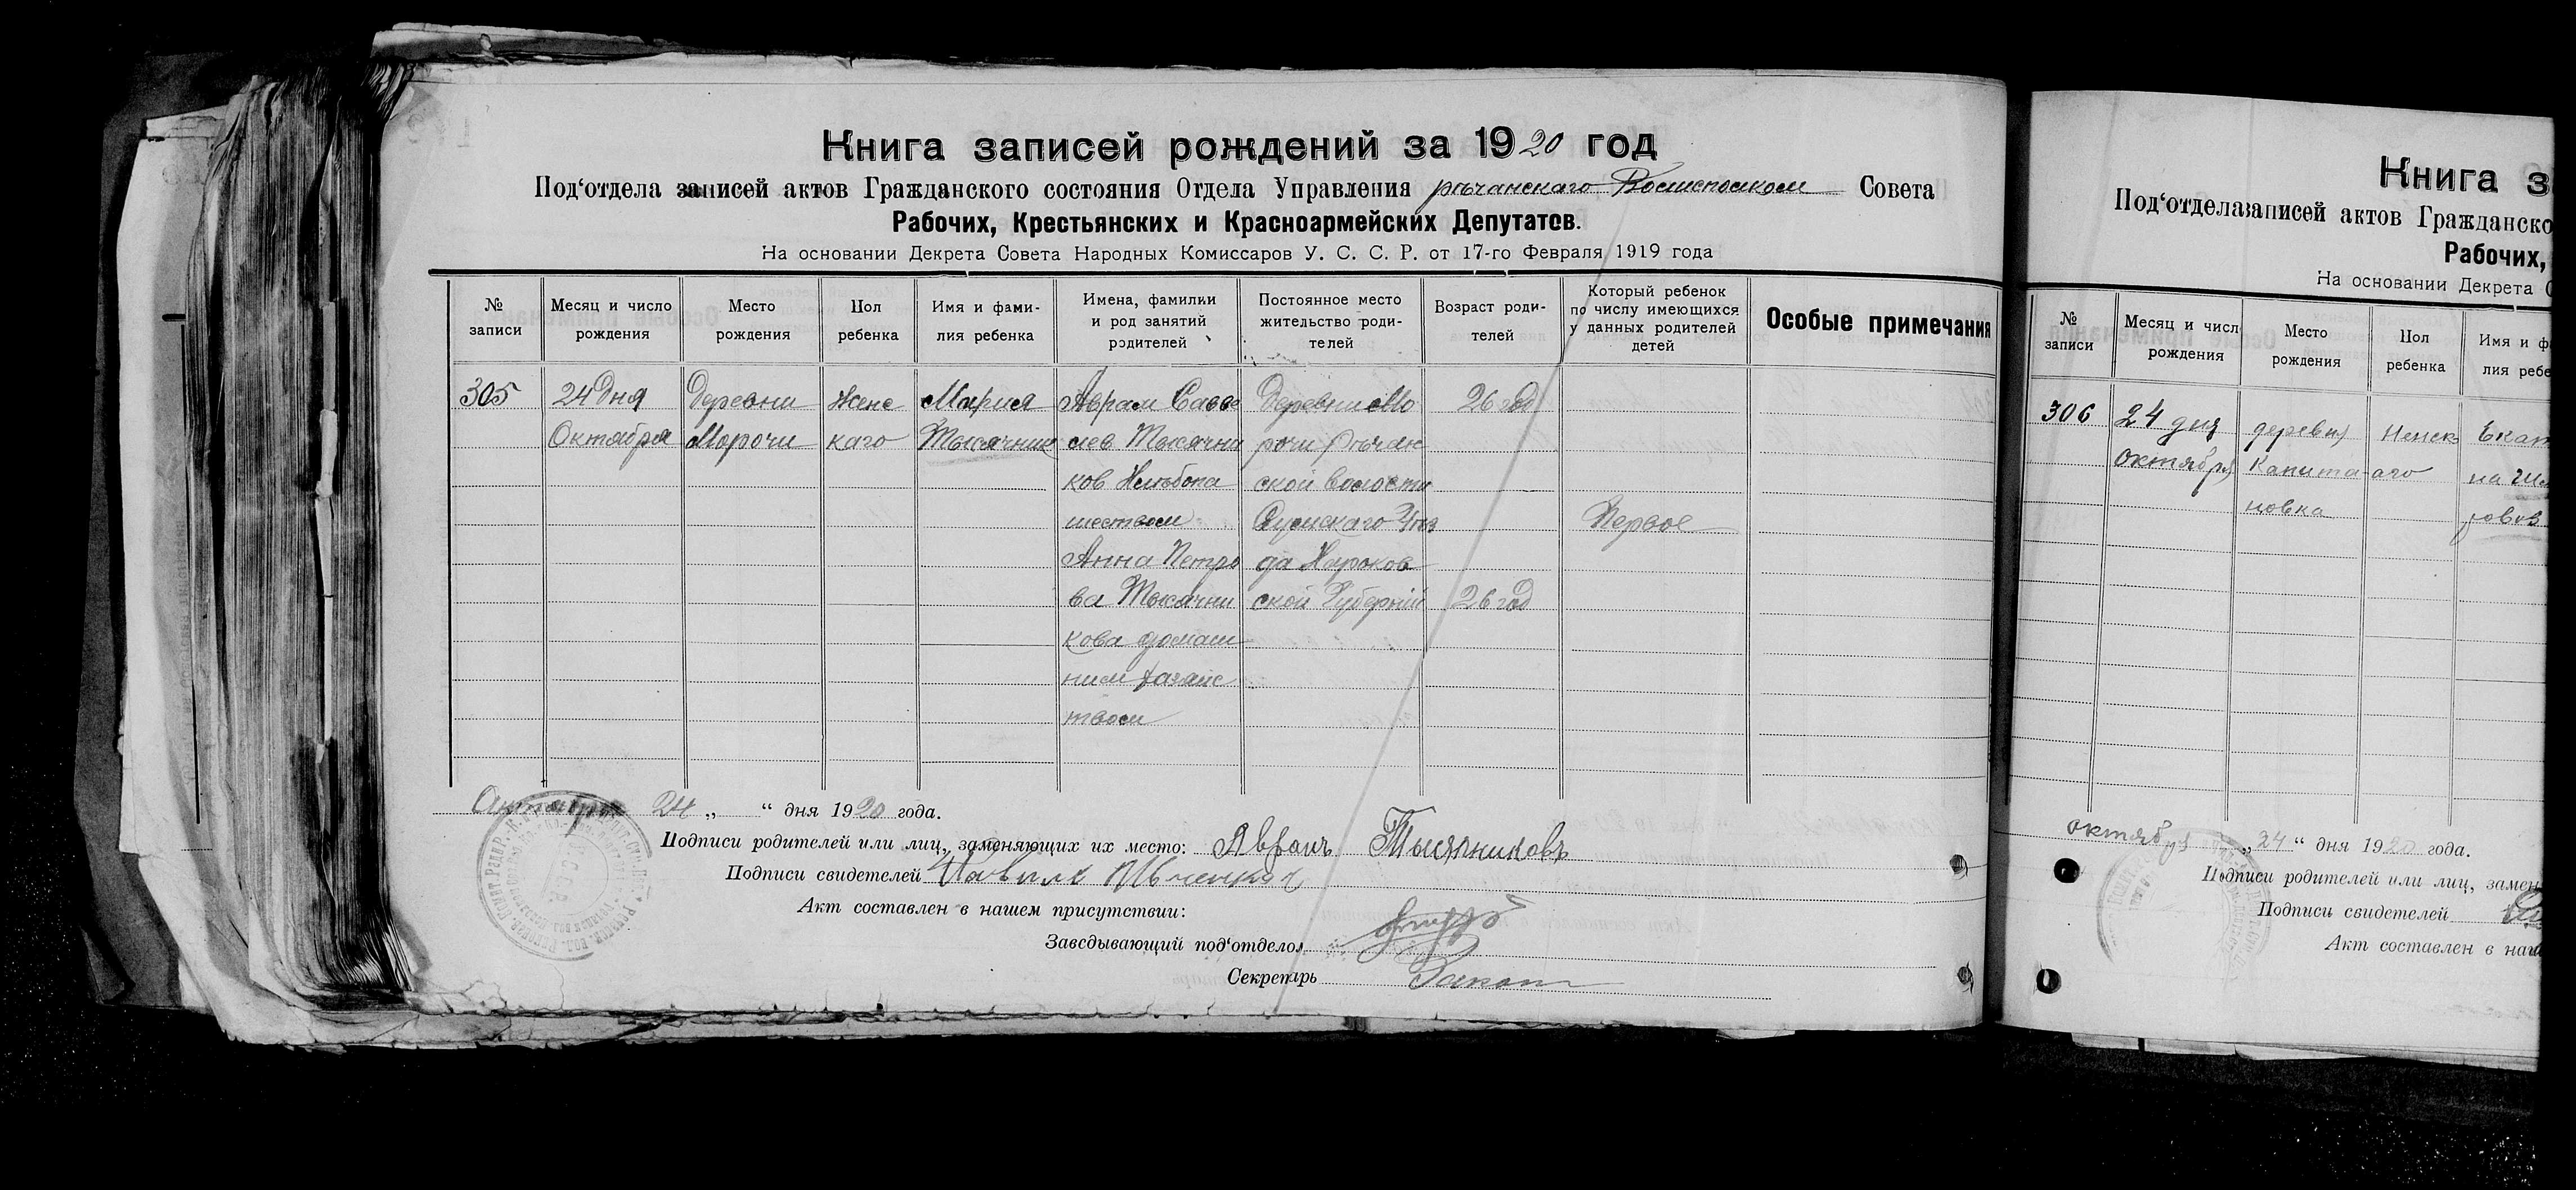 Книга записей рождений за 1920 год
Под‘отдела записей актов Гражданского состояния Отдела Управления речанскаго Волисполком Совета
Рабочих, Крестьянских и Красноармейских Депутатов.
На основании Декрета Совета Народных Комиссаров У. С. С. Р. от 17-го Февраля 1919 года
№ записи
Месяц и число рождения
Место рождения
Пол ребенка
Имя и фами-
лия ребенка
Имена, фамилии
и род занятий
родителей
Постоянное место
жительство роди-
телей
Возраст роди-
телей
Который ребенок
по числу имеющихся
у данных родителей
детей
Особые примечания
305
24 дня
Октября
Деревни
Марочи
Женс
каго
Мария
Тысячник
Аврам Савве
лев Тысячни
ков Хлебопа
шеством
Анна Петро
ва Тысячни
кова домаш
ним хазяйс
твом
Деревни Мо
рочи Речан
ской волости
Сумскаго Уез
да Харьков
ской Губернии
26 год
26 год
Первое
Октября 24 „ “ дня 1920 года.
Подписи родителей или лиц, заменяющих их место: Авраамъ Тысячниковъ
Подписи свидетелей
Акт составлен в нашем присутствии:
Заведывающий под‘отделол
Секретарь
Книга з
Под‘отдела записей актов Гражданско
Рабочих,
На основании Декрета С
№ записи
Месяц и числ
рождения
Место рождения
Пол ребенка
Имя и фа
лия ребе
306
24 дня
октября
деревня
Капита
новка
Женск
аго
Екат
на
октября „24“ дня 1920 года.
Подписи родителей или лиц, замен
Подписи свидетелей
Акт составлен в наш